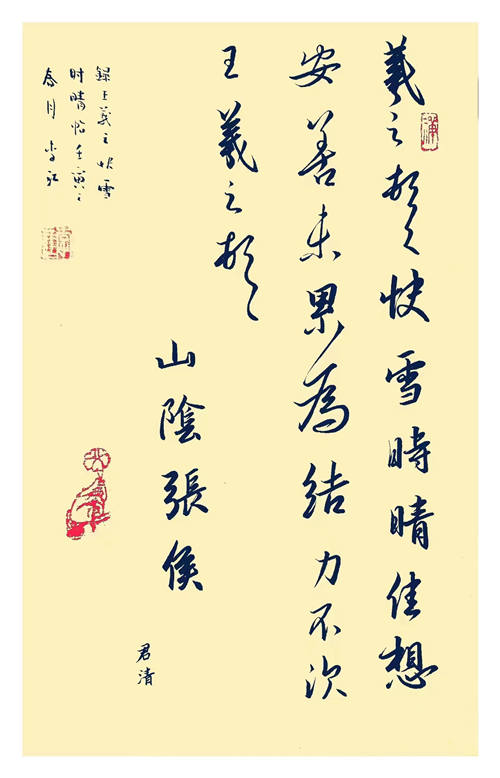 羲之頓首快雪時晴佳想
安善未果為結力不次
王羲之頓首
山陰張侯
君清
録王羲之快雪
时晴帖壬寅之
月